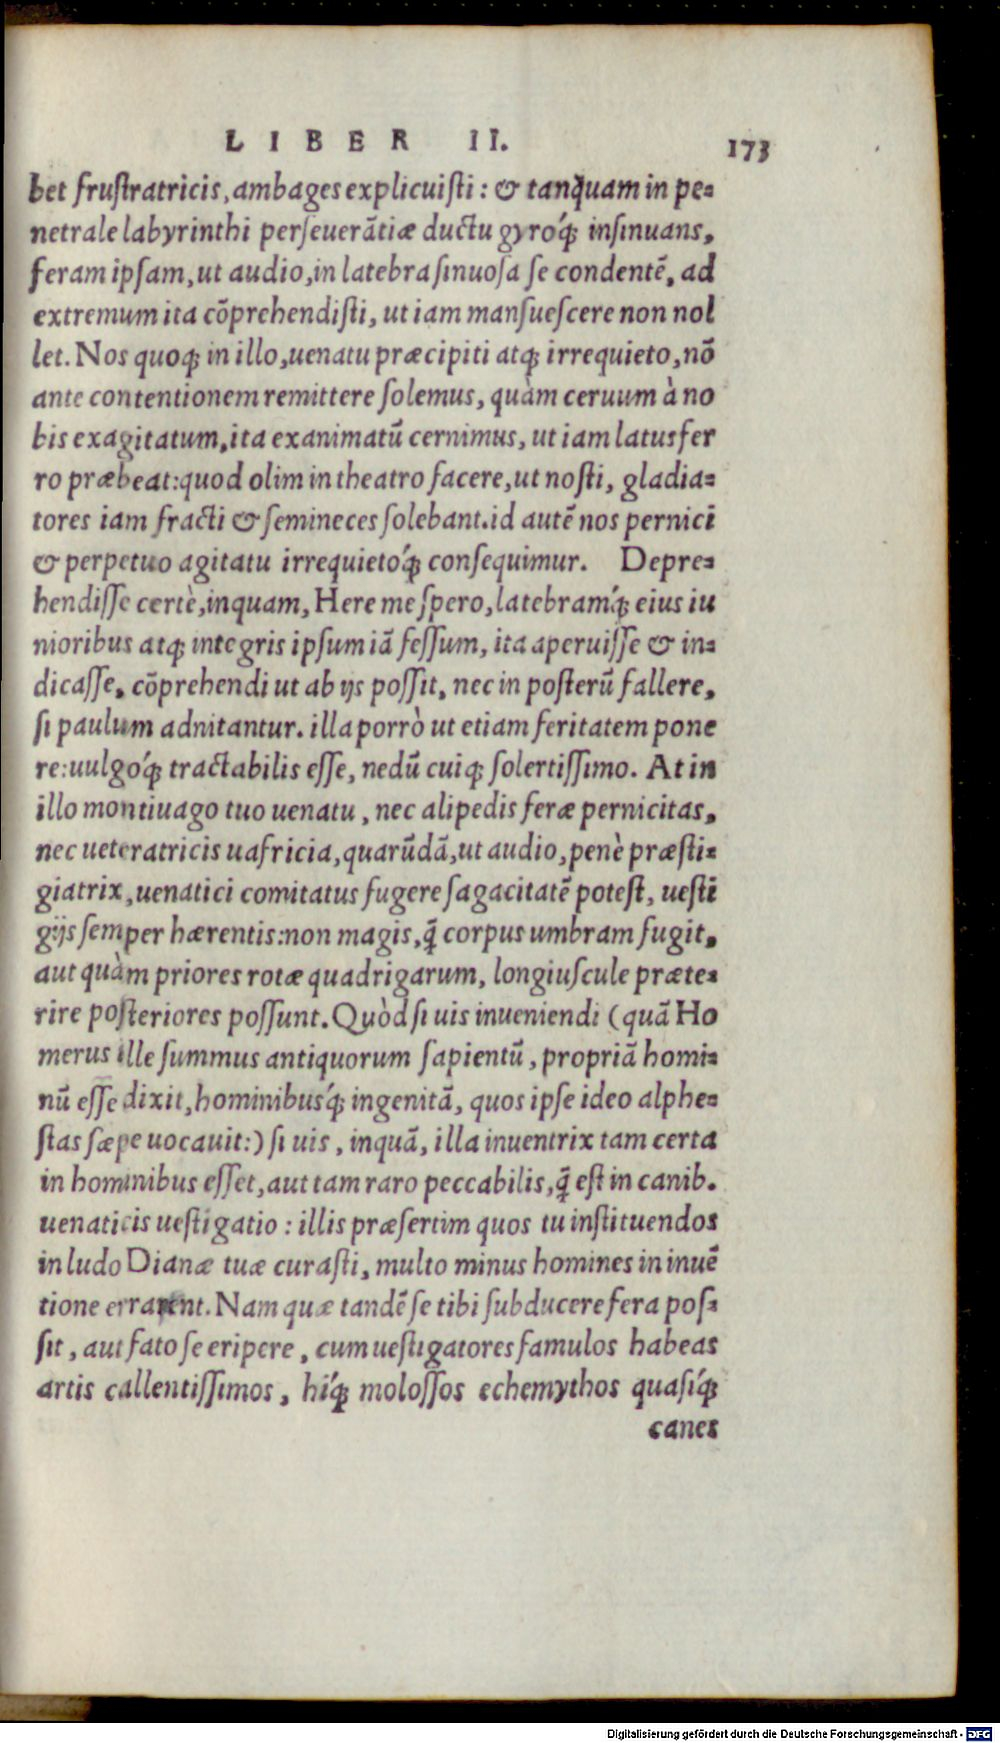 LIBER II. 173
bet frustratricis, ambages explicuisti: & tanquam in pe=
netrale labyrinthi perseuerātiæ ductu gyroq́; insinuans,
feram ipsam, ut audio, in latebra sinuosa se condentē, ad
extremum ita cōprehendisti, ut iam mansuescere non nol
let. Nos quoq; in illo, uenatu præcipiti atq; irrequieto, nō
ante contentionem remittere solemus, quàm ceruum à no
bis exagitatum, ita exanimatū cernimus, ut iam latus fer
ro præbeat: quod olim in theatro facere, ut nosti, gladia=
tores iam fracti & semineces solebant. id autē nos pernici
& perpetuo agitatu irrequietoq́; consequimur. Depre=
hendisse certè, inquam, Here me spero, latebramq́; eius iu
nioribus atq; integris ipsum iā fessum, ita aperuisse & in=
dicasse, cōprehendi ut ab ijs possit, nec in posterū fallere,
si paulum adnitantur. illa porrò ut etiam feritatem pone
re: uulgoq́; tractabilis esse, nedū cuiq; solertissimo. At in
illo montiuago tuo uenatu, nec alipedis feræ pernicitas,
nec ueteratricis uafricia, quarūdā, ut audio, penè præsti=
giatrix, uenatici comitatus fugere sagacitatē potest, uesti
gijs semper hærentis: non magis, q̄ corpus umbram fugit,
aut quàm priores rotæ quadrigarum, longiuscule præte=
rire posteriores possunt. Quòd si uis inueniendi (quā Ho
merus ille summus antiquorum sapientū, propriā homi=
nū esse dixit, hominibusq́; ingenitā, quos ipse ideo alphe=
stas sæpe uocauit:) si uis, inquā, illa inuentrix tam certa
in hominibus esset, aut tam raro peccabilis, q̄ est in canib.
uenaticis uestigatio: illis præsertim quos tu instituendos
in ludo Dianæ tuæ curasti, multo minus homines in inuē
tione errarent. Nam quæ tandē se tibi subducere fera pos=
sit, aut fato se eripere, cum uestigatores famulos habeas
artis callentissimos, hiq́; molossos echemythos quasiq́;
canes
Digitalisierung gefördert durch die Deutsche Forschungsgemeinschaft - DFG